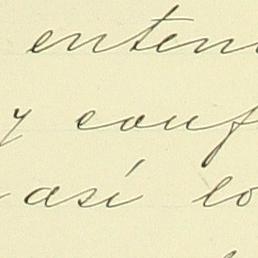 enten
y conf
así lo